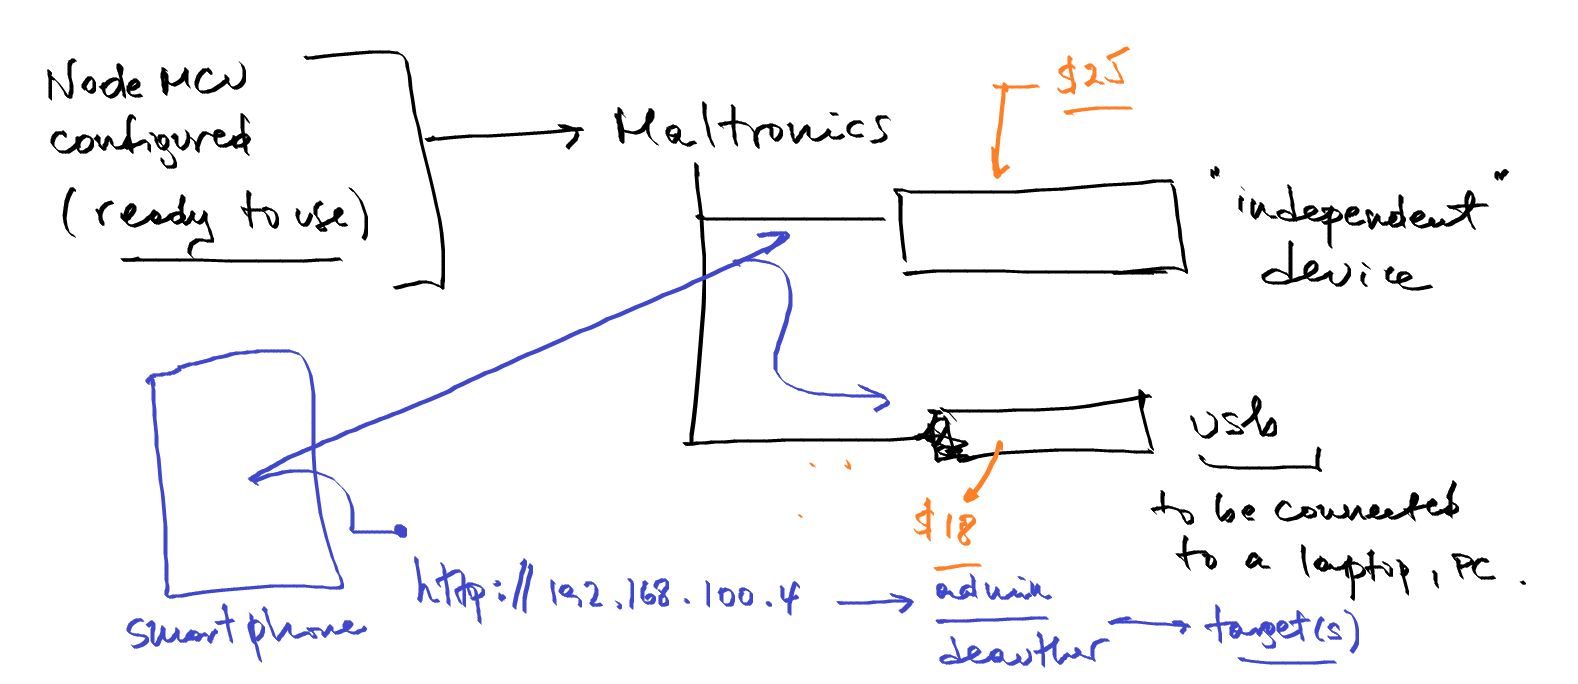 Node MCU
configured
(ready to use)
Maltronics
$25
"independent"
device
usb
to be connected
to a laptop, PC.
$18
smartphone
http://192.168.100.4
admin
deauther
target(s)